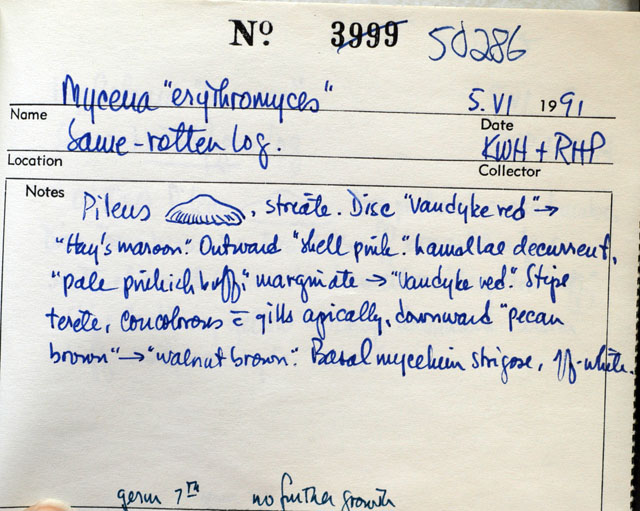 Nº 3999 50286
Mycena "erythromyces" 5.VI 1991
Name Date
Same-rotten log. KWH + RHP
Location Collector
Notes Pileus , striate. Disc "Vandyke red" →
"Hay's maroon". Outward "shell pink". Lamellae decurrent,
"pale pinkish buff," marginate → "Vandyke red". Stipe
terete, concolorous c̄ gills apically, downward "pecan
brown" → "walnut brown". Basal mycelium strigose, off-white.
germ 7th no further growth